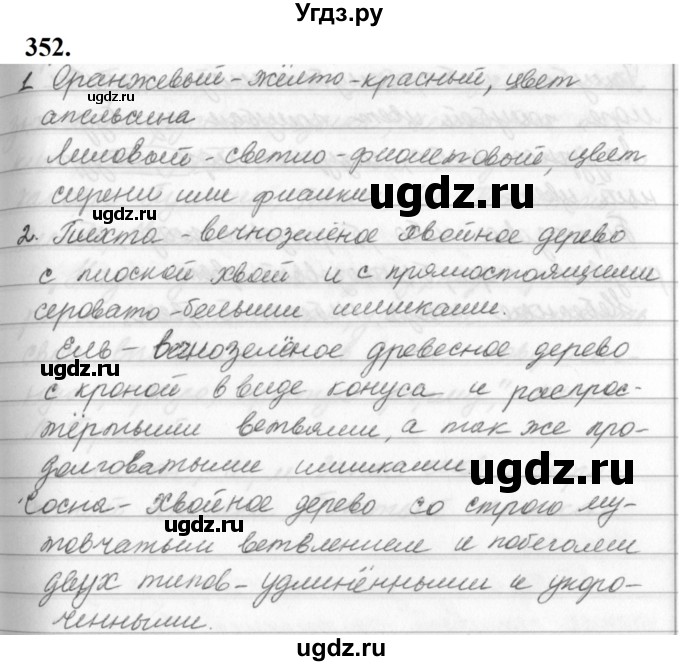 Угдз.ру
352.
1 Оранжевый - жёлто-красный, цвет
gdz.ru
апельсина
Лиловый - светло-фиолетовый, цвет
сирени или фиалки
gdz.ru
gdz.ru
2. Пихта - вечнозелёное хвойное дерево
с плоской хвоей и с прямостоящими
серовато-белыми шишками.
Ель - вечнозелёное древесное дерево
gdz.ru
с кроной в виде конуса и распрос-
тёртыми ветвями, а так же про-
долговатыми шишками
gdz.ru
Сосна - хвойное дерево со строго му-
gdz.ru
товчатым ветвлением и побегами
двух типов - удлинёнными и укоро-
ченными.
gdz.ru
gdz.ru